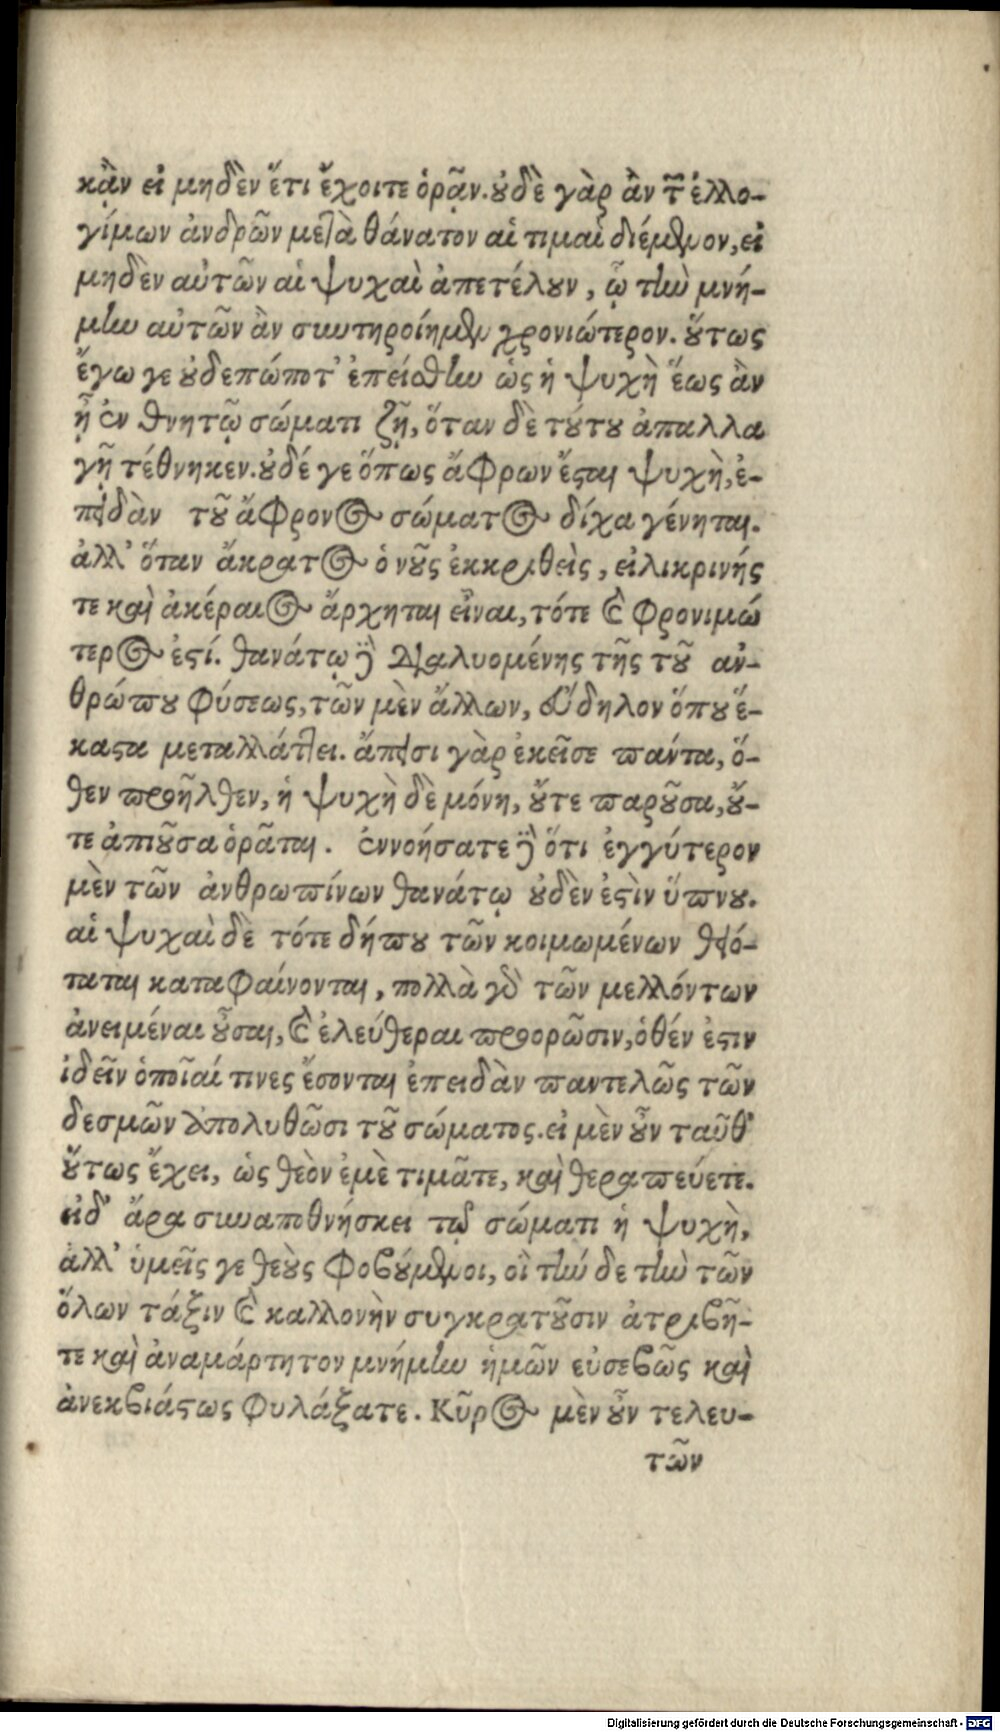 κᾂν εἰ μηδὲν ἔτι ἔχοιτε ὁρᾷν. ȣ̓δὲ γὰρ ἂν τ̃ ἐλλο-
γίμων ἀνδρῶν μετὰ θάνατον αἱ τιμαὶ διέμενον, εἰ
μηδὲν αὐτῶν αἱ ψυχαὶ ἀπετέλȣν, ᾧ τὴν μνή-
μην αὐτῶν ἂν συντηροίημεν χρονιώτερον. ȣ̔́τως
ἔγωγε ȣ̓δεπώποτ᾽ ἐπείσθην ὡς ἡ ψυχὴ ἕως ἂν
ᾖ ἐν θνητῷ σώματι ζῇ, ὅταν δὲ τȣ́τȣ ἀπαλλα
γῇ τέθνηκεν. ȣ̓δέ γε ὅπως ἄφρων ἔϛαι ψυχὴ, ἐ-
πειδὰν τȣ͂ ἄφρονος σώματος δίχα γένηται.
ἀλλ᾽ ὅταν ἄκρατος ὁ νȣ͂ς ἐκκριθεὶς, εἰλικρινής
τε καὶ ἀκέραιος ἄρχηται εἶναι, τότε καὶ φρονιμώ
τερος ἐϛί. θανάτῳ δὲ διαλυομένης τῆς τȣ͂ ἀν-
θρώπȣ φύσεως, τῶν μὲν ἄλλων, εὔδηλον ὅπȣ ἕ-
καϛα μεταλλάττει. ἄπεισι γὰρ ἐκεῖσε πάντα, ὅ-
θεν προῆλθεν, ἡ ψυχὴ δὲ μόνη, ȣ̓́τε παρȣ͂σα, ȣ̓́-
τε ἀπιȣ͂σα ὁρᾶται. ἐννοήσατε δὲ ὅτι ἐγγύτερον
μὲν τῶν ἀνθρωπίνων θανάτῳ ȣ̓δὲν ἐϛὶν ὕπνȣ.
αἱ ψυχαὶ δὲ τότε δήπȣ τῶν κοιμωμένων θειό-
ταται καταφαίνονται, πολλὰ γὰρ τῶν μελλόντων
ἀνειμέναι ȣ̓͂σαι, καὶ ἐλεύθεραι προορῶσιν, ὁθέν ἐϛιν
ἰδεῖν ὁποῖαί τινες ἔσονται ἐπειδὰν παντελῶς τῶν
δεσμῶν ἀπολυθῶσι τȣ͂ σώματος. εἰ μὲν ȣ̓͂ν ταῦθ᾽
ȣ̔́τως ἔχει, ὡς θεὸν ἐμὲ τιμᾶτε, καὶ θεραπεύετε.
εἰδ᾽ ἄρα συναποθνήσκει τῷ σώματι ἡ ψυχὴ,
ἀλλ᾽ ὑμεῖς γε θεȣ̀ς φοβȣ́μενοι, οἳ τήν δε τὴν τῶν
ὅλων τάξιν καὶ καλλονὴν συγκρατȣ͂σιν ἀτριβῆ-
τε καὶ ἀναμάρτητον μνήμην ἡμῶν εὐσεβῶς καὶ
ἀνεκβιάϛως φυλάξατε. Κῦρος μὲν ȣ̓͂ν τελευ-
τῶν
Digitalisierung gefördert durch die Deutsche Forschungsgemeinschaft - DFG